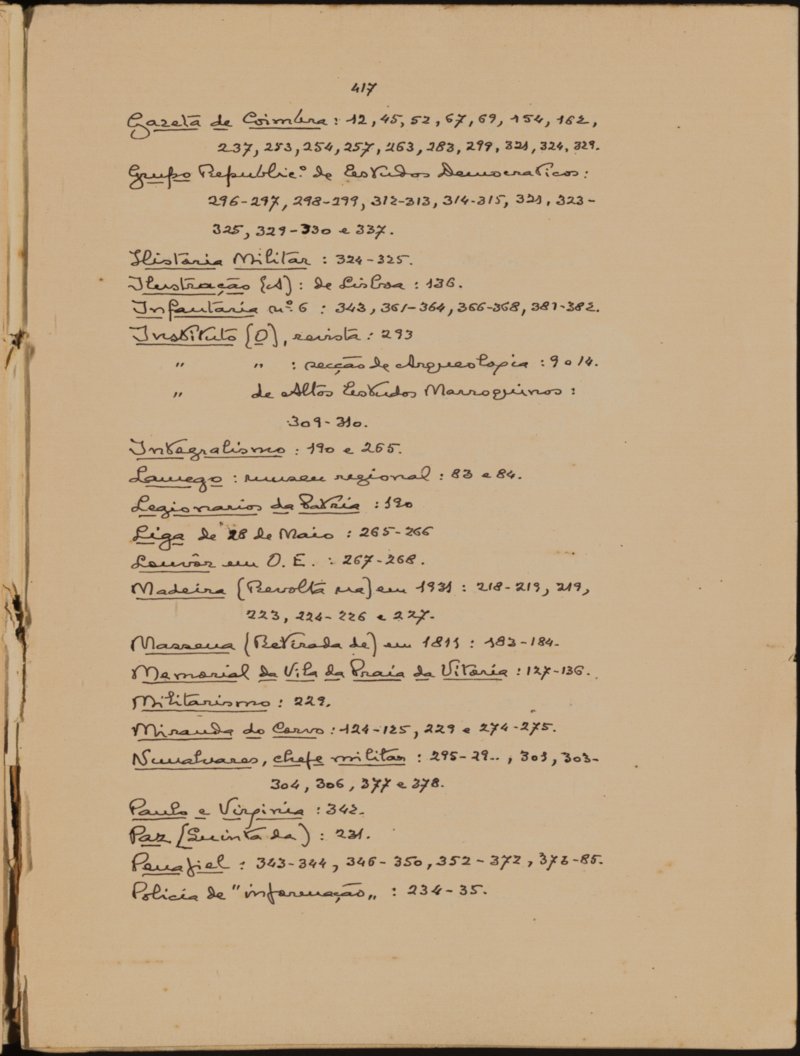 417
Gazeta de Coimbra : 12, 45, 52, 67, 69, 154, 162,
237, 253, 254, 257, 263, 283, 299, 321, 324, 329.
Grupo Republic.º de Estudos Democraticos :
296-297, 298-299, 312-313, 314-315, 321, 323-
325, 329-330 e 337.
Historia Militar : 324-325.
Ilustração (A) : de Lisboa : 136.
Infantaria n.º 6 : 343, 361-364, 366-368, 381-382.
Instituto (O), revista : 293
" " : secção de Arqueologia : 9 a 14.
" de Altos Estudos Marroquinos :
309-310.
Integralismo : 190 e 265.
Lamego : museu regional : 83 e 84.
Legionarios da Patria : 190
Liga de 28 de Maio : 265-266
Louvôr em O. E. : 267-268.
Madeira (Revolta na) em 1931 : 218-219, 219,
223, 224-226 e 227.
Massena (Retirada de) em 1811 : 183-184.
Memorial da Vila da Praia da Vitoria : 127-136.
Militarismo : 229.
Miranda do Corvo : 124-125, 229 e 274-275.
Nunalvares, chefe militar : 295-29.., 301, 303-
304, 306, 377 e 378.
Paulo e Virginia : 342.
Paz (Quinta da) : 231.
Penafiel : 343-344, 346-350, 352-372, 373-85.
Policia de "informação„ : 234-35.